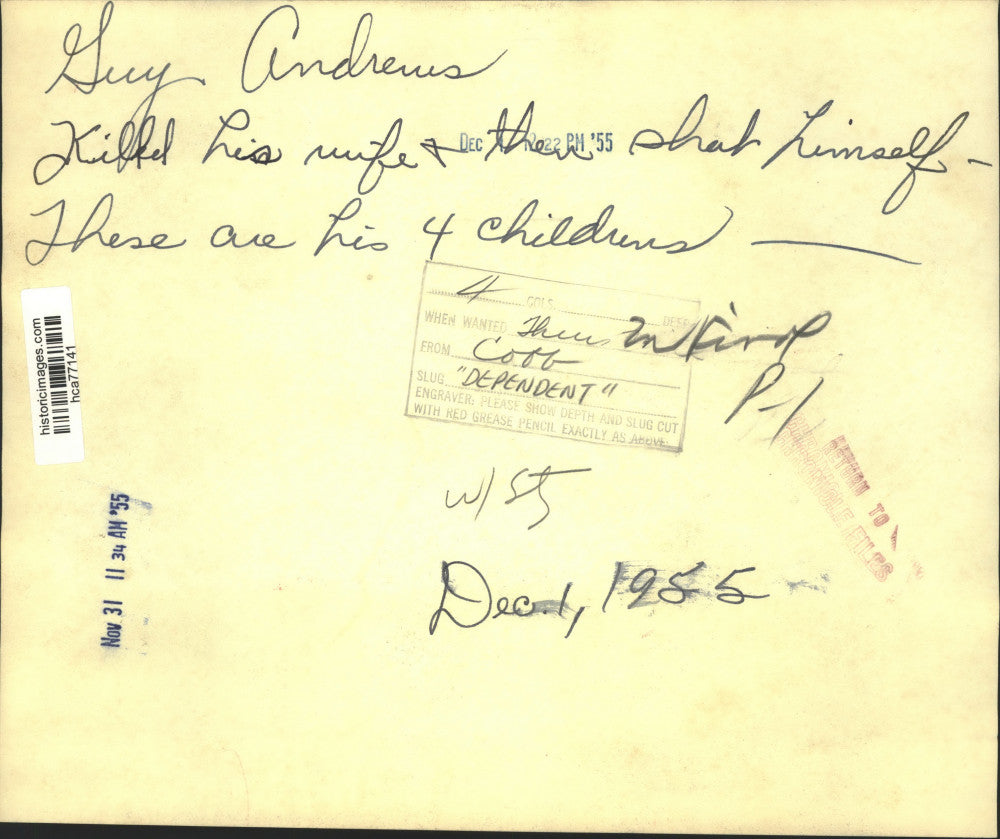 Guy Andrews
Killed his wife & then shot himself -
DEC 22 PM '55
These are his 4 childrens
4 COLS. DEEP
WHEN WANTED Thurs
FROM Cobb
SLUG "DEPENDENT"
ENGRAVER: PLEASE SHOW DEPTH AND SLUG CUT
WITH RED GREASE PENCIL EXACTLY AS ABOVE.
P-1
historicimages.com
hca77141
RETURN TO
w/ Sty
NOV 31 11 34 AM '55
Dec. 1, 1955